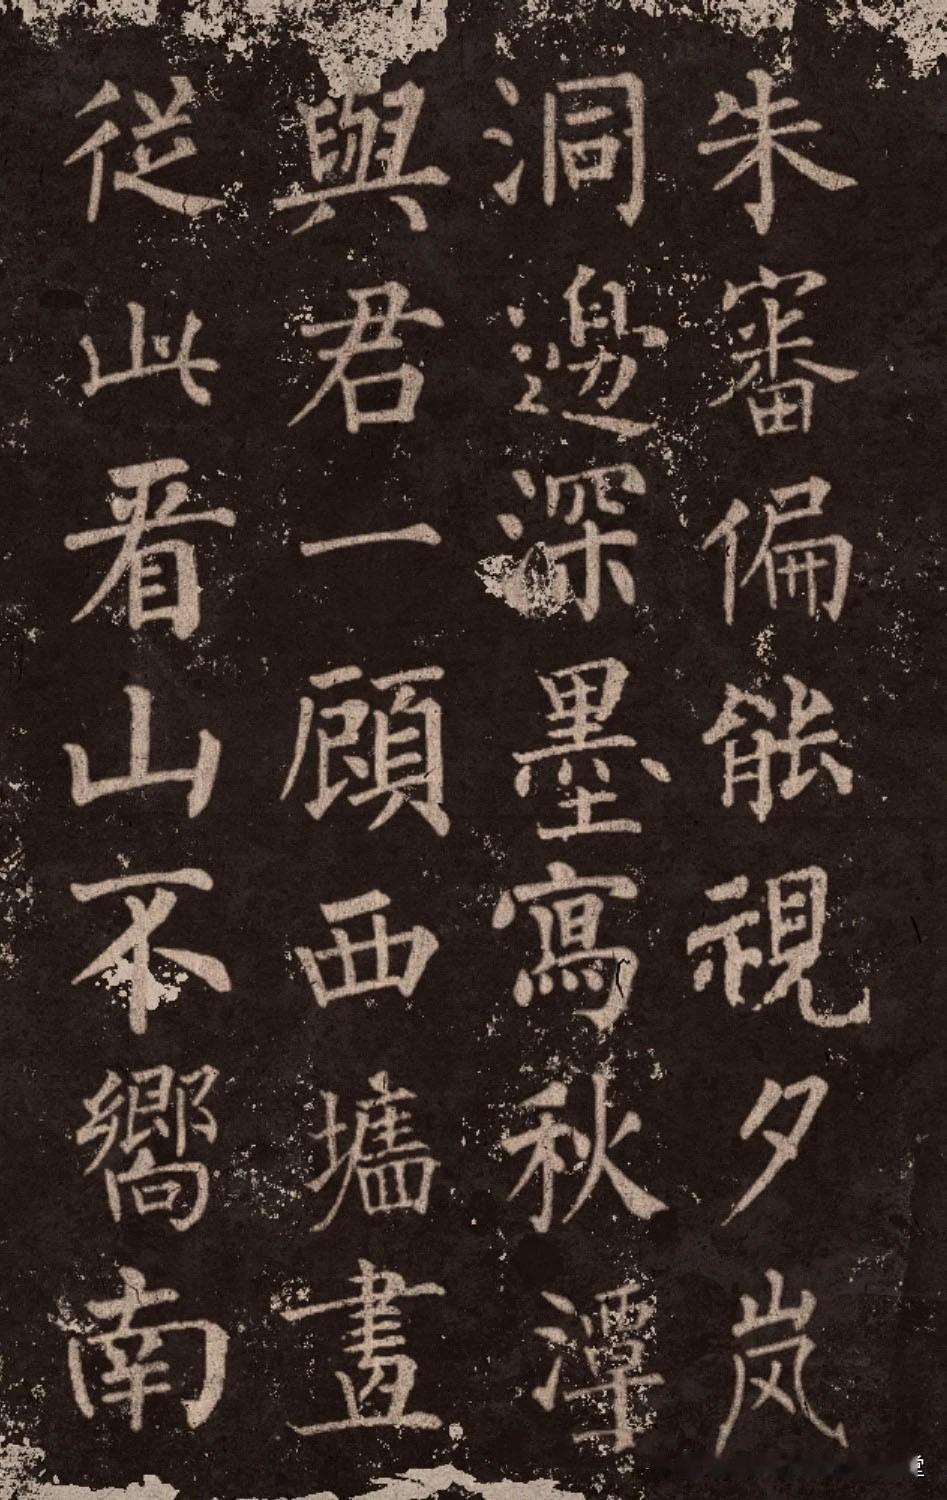 朱審偏能視夕岚
洞邊深墨寫秋潭
與君一顧西墻畫
従此看山不嚮南